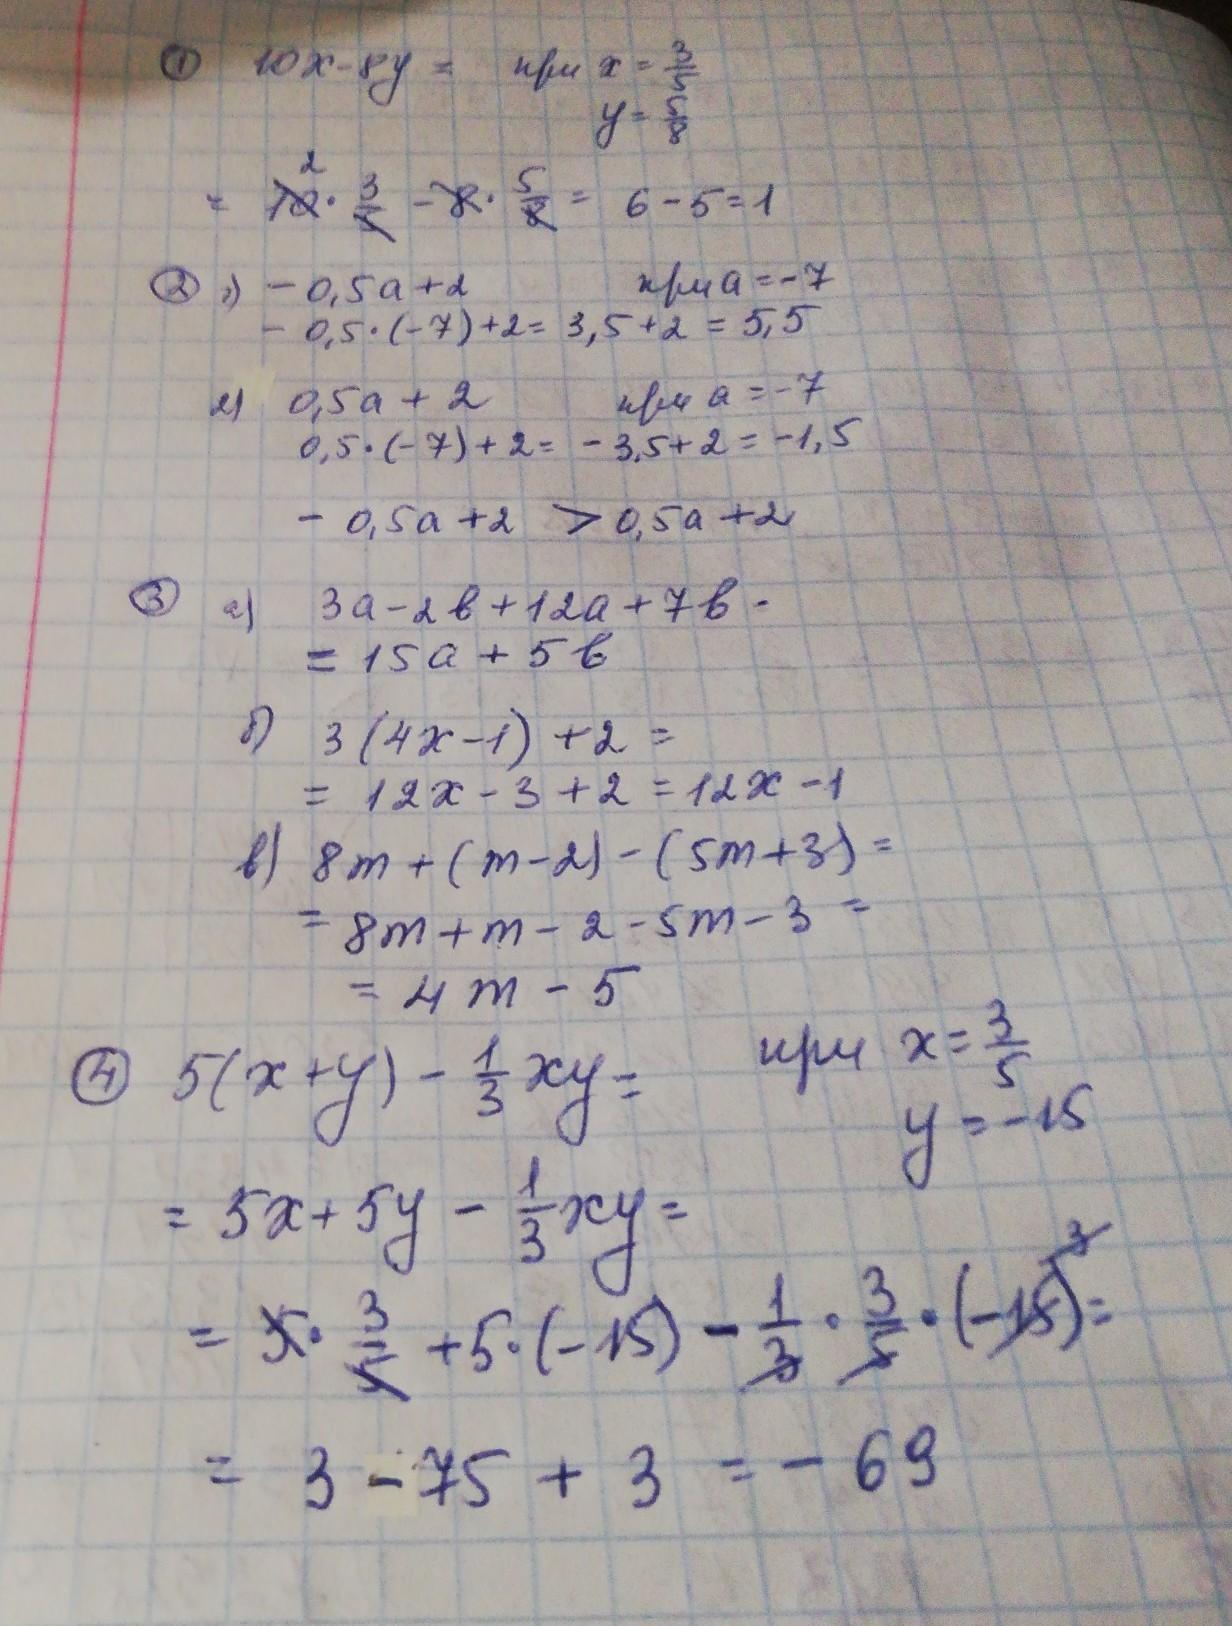 ① 10x - 8y = при x = 3/5
y = 5/8
= 10² · 3/5 - 8 · 5/8 = 6 - 5 = 1
② 1) - 0,5a + 2 при a = -7
- 0,5 · (-7) + 2 = 3,5 + 2 = 5,5
2) 0,5a + 2 при a = -7
0,5 · (-7) + 2 = - 3,5 + 2 = -1,5
- 0,5a + 2 > 0,5a + 2
③ а) 3a - 2b + 12a + 7b -
= 15a + 5b
б) 3(4x - 1) + 2 =
= 12x - 3 + 2 = 12x - 1
в) 8m + (m - 2) - (5m + 3) =
= 8m + m - 2 - 5m - 3 =
= 4m - 5
④ 5(x + y) - 1/3 xy = при x = 3/5
y = -15
= 5x + 5y - 1/3 xy =
= 5 · 3/5 + 5 · (-15) - 1/3 · 3/5 · (-15)³ =
= 3 - 75 + 3 = - 69